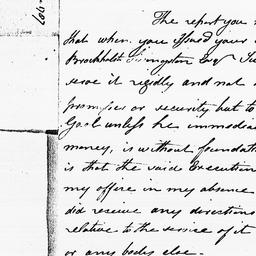 The report you
that when you issued your
Brockholst Livingston Esqr
serve it rigidly and not
promises or security but to
Gaol unless he immediat
money, is without foundatio
is that the said Execution
my office in my absence
did receive any directions
relative to the service of it
or any bodies else.